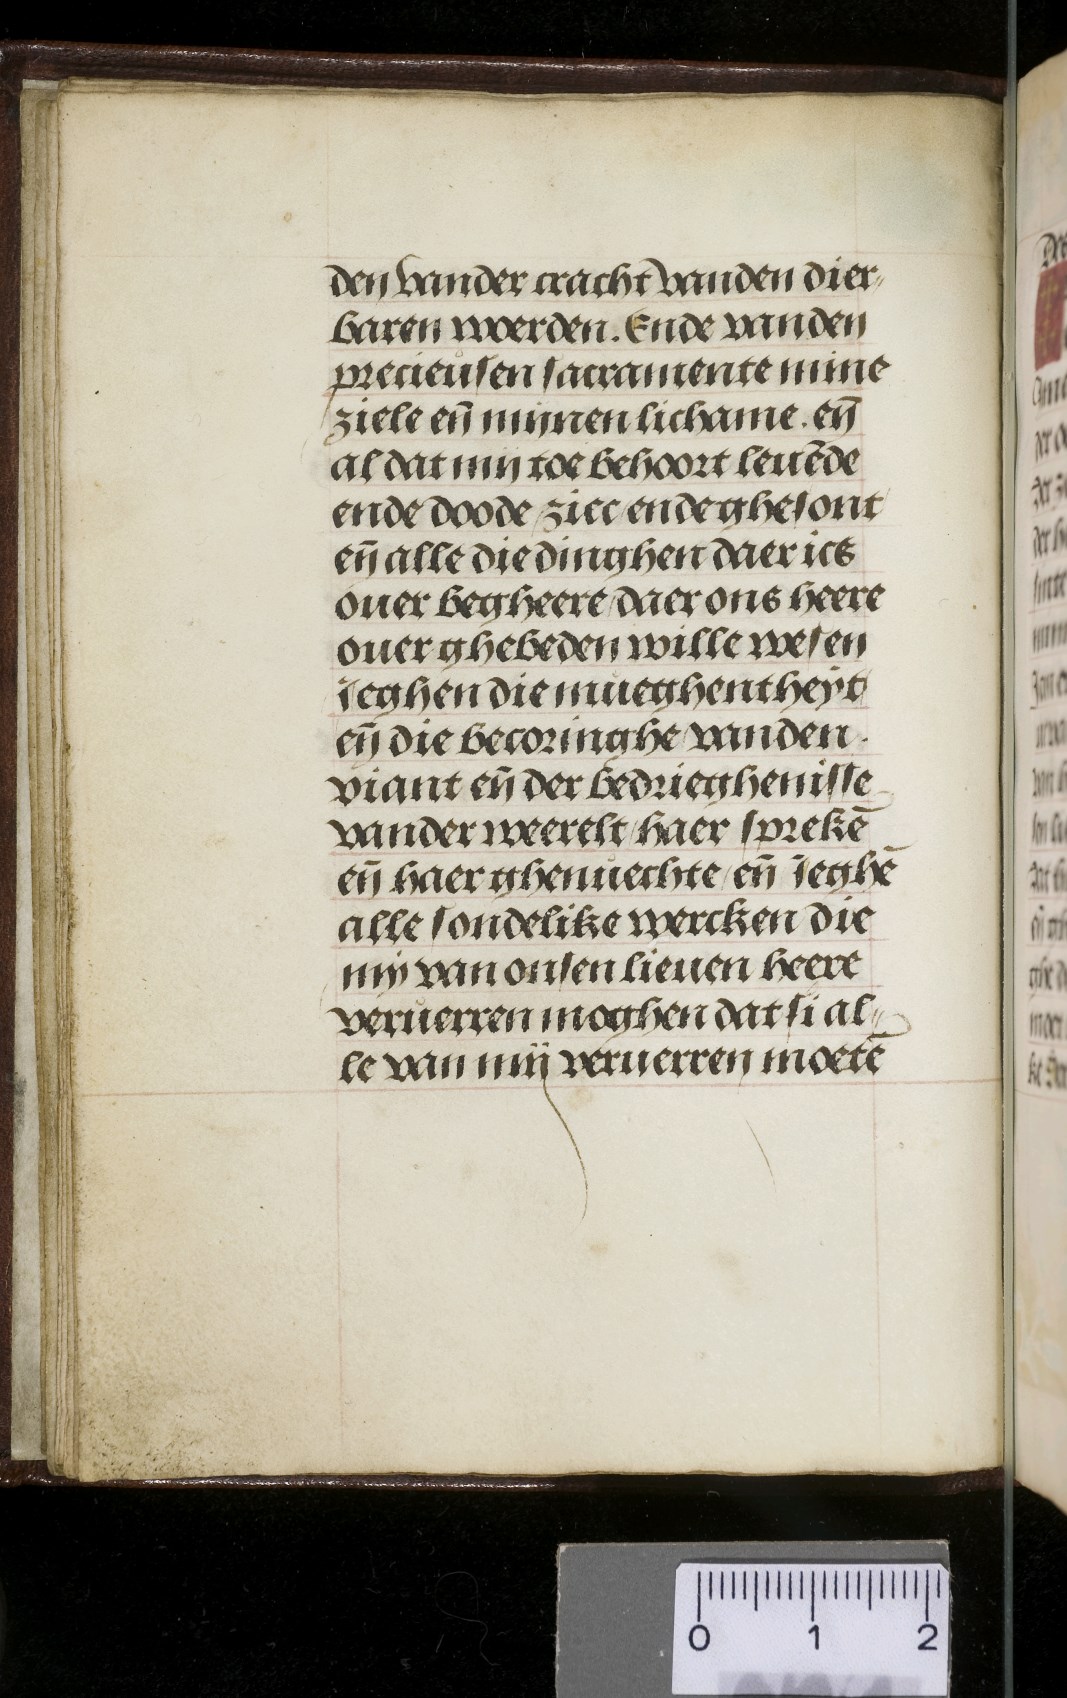 den vander cracht vanden dier⸗
baren woerden. Ende vanden
precieusen sacramente mine
ziele eñ mijnen lichame. eñ
al dat mij toe behoort leuēde
ende doode / ziec / ende ghesont
eñ alle die dinghen daer ics
ouer begheere / daer ons heere
ouer ghebeden wille wesen
Jeghen die mueghentheyt
eñ die becoringhe vanden
viant eñ der bedrieghenisse
vander weerelt / haer sprekē
eñ haer ghenuechte / eñ Jeghē
alle sondelike wercken die
mij van onsen lieuen heere
veruerren moghen dat si al⸗
le van mij veruerren moetē
0 1 2